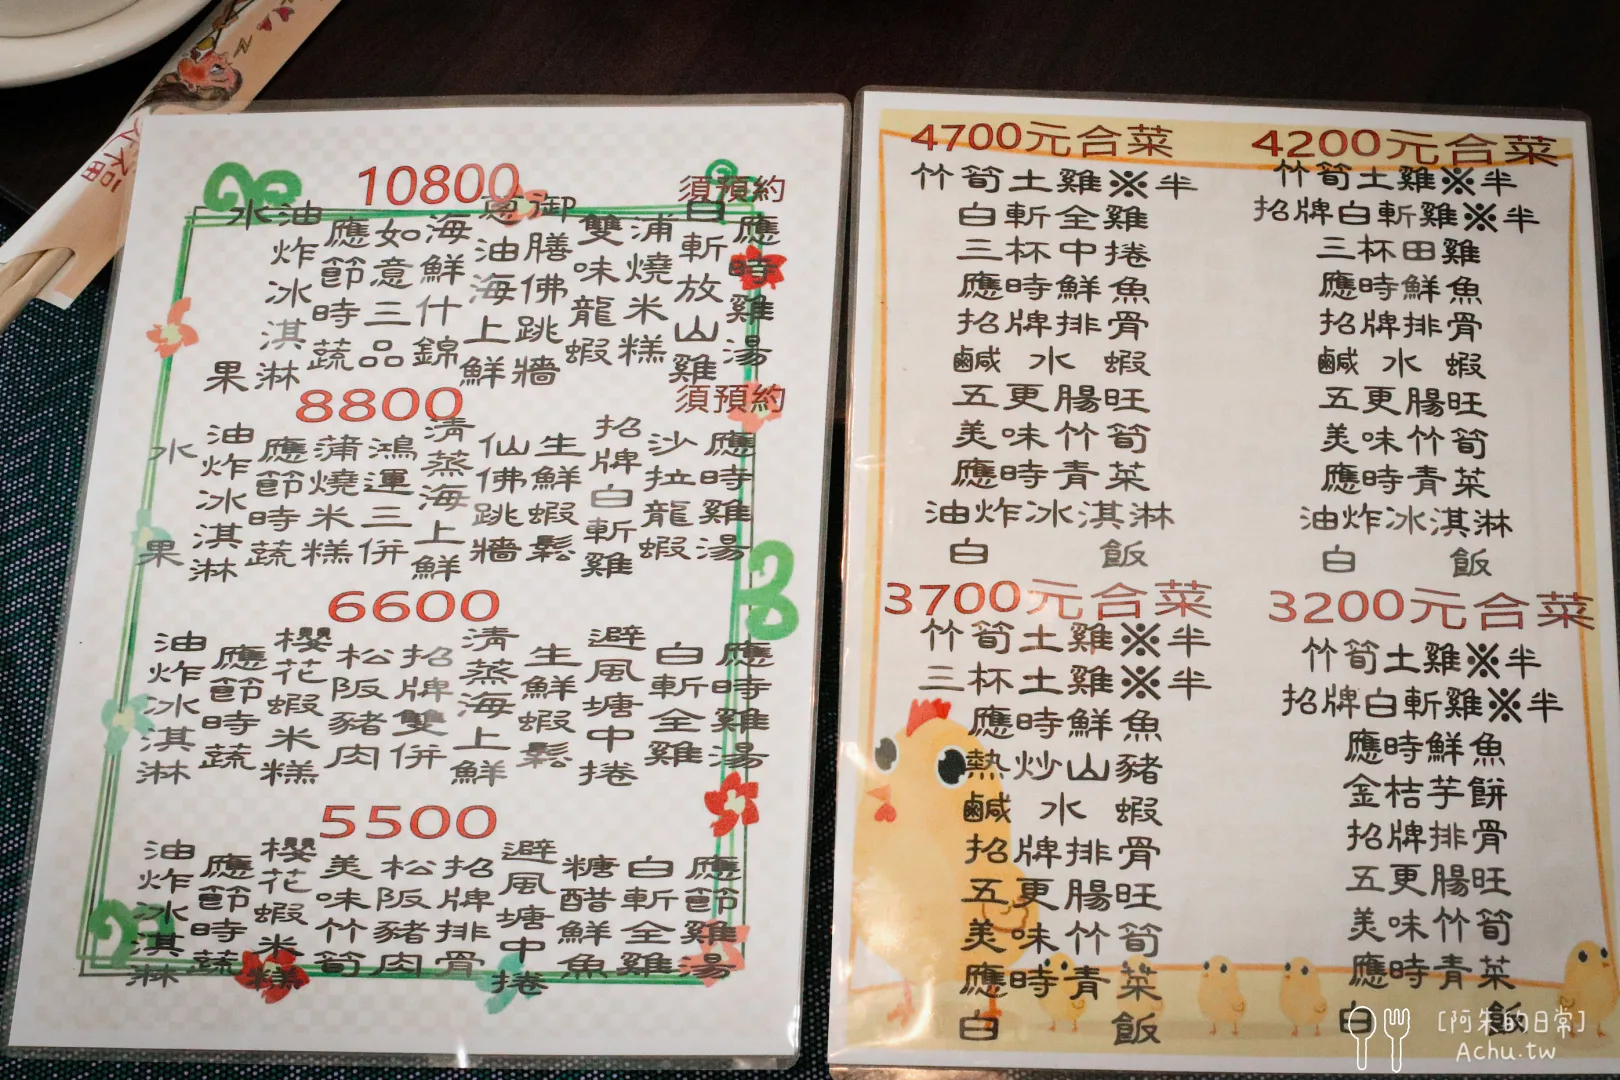 10800
須預約
應時雞湯
白斬放山雞
浦燒米糕
雙味龍蝦
御膳佛跳牆
蔥油海上鮮
海鮮什錦
如意三品
應節時蔬
油炸冰淇淋
水果
8800
須預約
應時雞湯
沙拉龍蝦
招牌白斬雞
生鮮蝦鬆
仙佛跳牆
清蒸海上鮮
鴻運三併
蒲燒米糕
應節時蔬
油炸冰淇淋
水果
6600
應時雞湯
白斬全雞
避風塘中捲
生鮮蝦鬆
清蒸海上鮮
招牌雙併
松阪豬肉
櫻花蝦米糕
應節時蔬
油炸冰淇淋
5500
應節雞湯
白斬全雞
糖醋鮮魚
避風塘中捲
招牌排骨
松阪豬肉
美味竹筍
櫻花蝦米糕
應節時蔬
油炸冰淇淋
4700元合菜
竹筍土雞※半
白斬全雞
三杯中捲
應時鮮魚
招牌排骨
鹹水蝦
五更腸旺
美味竹筍
應時青菜
油炸冰淇淋
白飯
4200元合菜
竹筍土雞※半
招牌白斬雞※半
三杯田雞
應時鮮魚
招牌排骨
鹹水蝦
五更腸旺
美味竹筍
應時青菜
油炸冰淇淋
白飯
3700元合菜
竹筍土雞※半
三杯土雞※半
應時鮮魚
熱炒山豬
鹹水蝦
招牌排骨
五更腸旺
美味竹筍
應時青菜
白飯
3200元合菜
竹筍土雞※半
招牌白斬雞※半
應時鮮魚
金桔芋餅
招牌排骨
五更腸旺
美味竹筍
應時青菜
白飯
福
[阿朱的日常]
Achu.tw